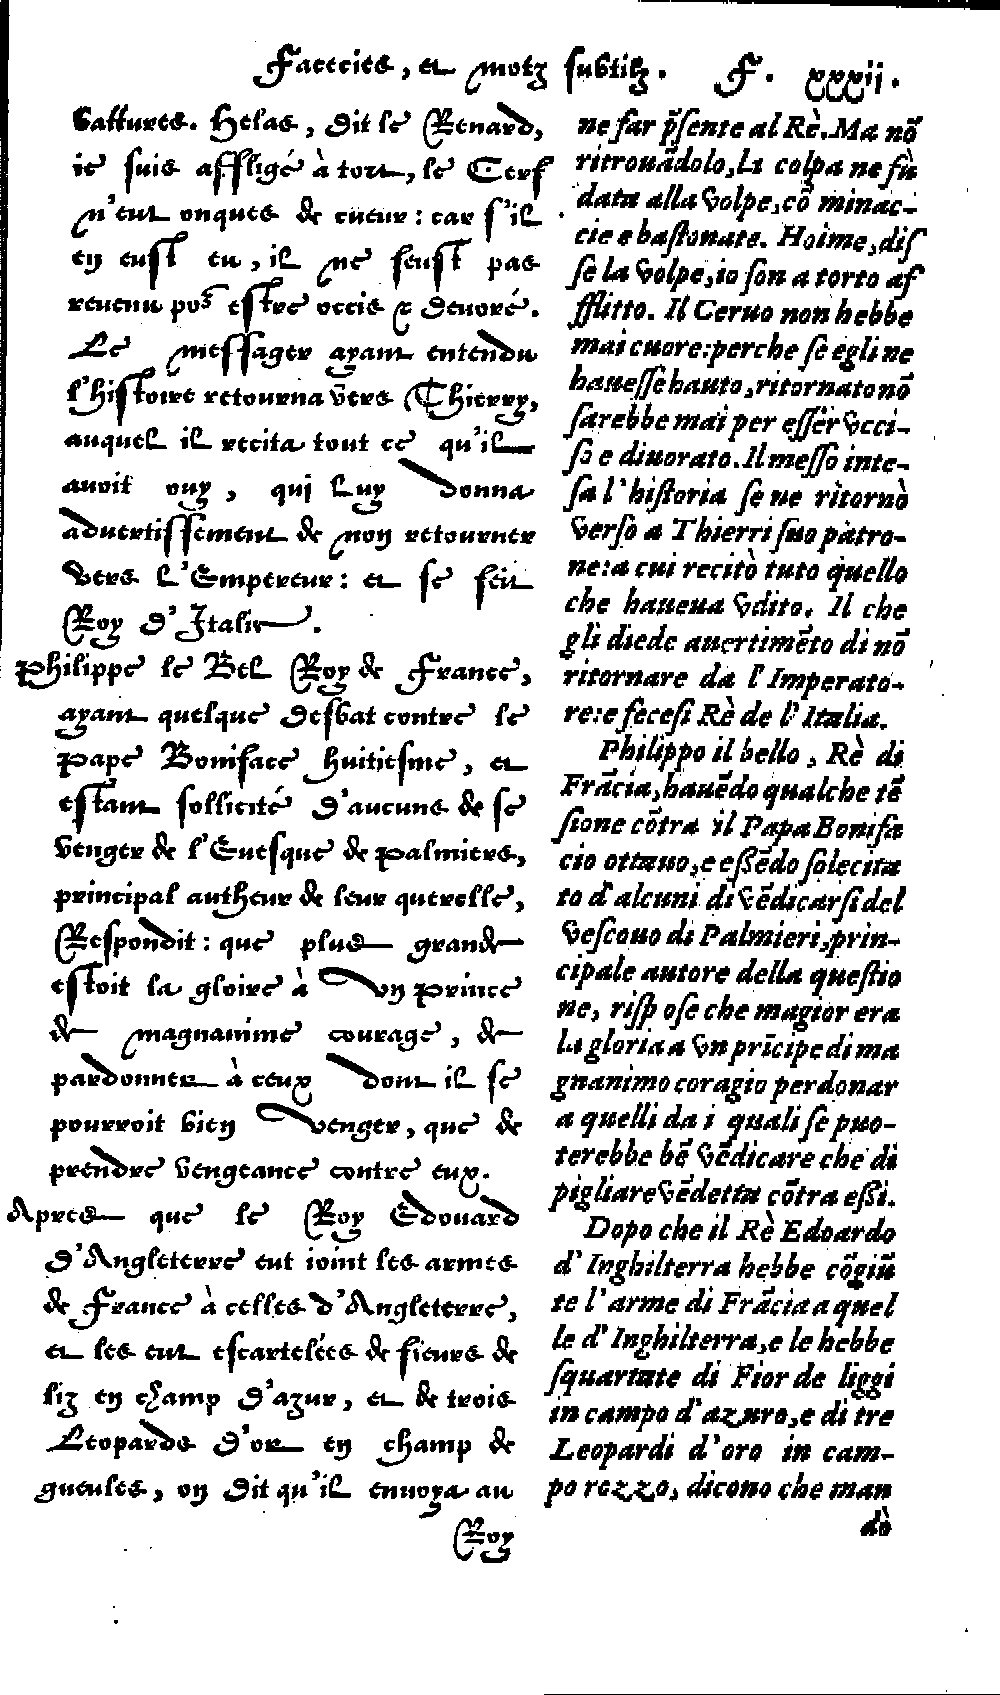 Facecies, et motz subtilz. F. xxxii.
battures. Helas, dit le Renard,
ie suis affligé à tort, le Cerf
n'eut onques de cueur: car s'il
en eust eu, il ne feust pas
reuenu po᷑ estre occis & deuoré.
Le messager ayant entendu
l'histoire retourna vers Thierry,
auquel il recita tout ce qu'il
auoit ouy, qui luy donna
aduertissement de non retourner
vers l'Empereur: et se feit
Roy d'Italie.
Philippe le Bel Roy de France,
ayant quelque desbat contre le
Pape Boniface huitiesme, et
estant sollicité d'aucuns de se
venger de l'Euesque de Palmiers,
principal autheur de leur querelle,
Respondit: que plus grande
estoit la gloire à vn prince
de magnanime courage, de
pardonner à ceux dont il se
pourroit bien venger, que de
prendre vengeance contre eux.
Apres que le Roy Edouard
d'Angleterre eut ioint les armes
de France à celles d'Angleterre,
et les eut escartelées de fleurs de
liz en champ d'azur, et de trois
Leopards d'or en champ de
gueules, on dit qu'il enuoya au
Roy
ne far p̃sente al Rè. Ma nõ
ritrouãdolo, la colpa ne fù
data alla volpe, cõ minac-
cie e bastonate. Hoime, dis
se la volpe, io son a torto af
fflitto. Il Ceruo non hebbe
mai cuore: perche se egli ne
hauesse hauto, ritornato nõ
sarebbe mai per esser vcci-
so e diuorato. Il messo inte-
sa l'historia se ne ritornò
verso a Thierri suo patro-
ne: a cui recitò tuto quello
che haueua vdito. Il che
gli diede auertimẽto di nõ
ritornare da l'Imperato-
re: e fecesi Rè de l'Italia.
Philippo il bello, Rè di
Frãcia, hauẽdo qualche tẽ
sione cõtra il Papa Bonifa
cio ottauo, e essẽdo solecita
to d'alcuni di vẽdicarsi del
vescouo di Palmieri, prin-
cipale autore della questio
ne, risp ose che magior era
la gloria a vn prĩcipe di ma
gnanimo coragio perdonar
a quelli da i quali se puo-
terebbe bẽ vẽdicare che di
pigliare vẽdetta cõtra essi.
Dopo che il Rè Edoardo
d'Inghilterra hebbe cõgiũ
te l'arme di Frãcia a quel
le d'Inghilterra, e le hebbe
squartate di Fior de liggi
in campo d'azuro, e di tre
Leopardi d'oro in cam-
po rozzo, dicono che man
dò